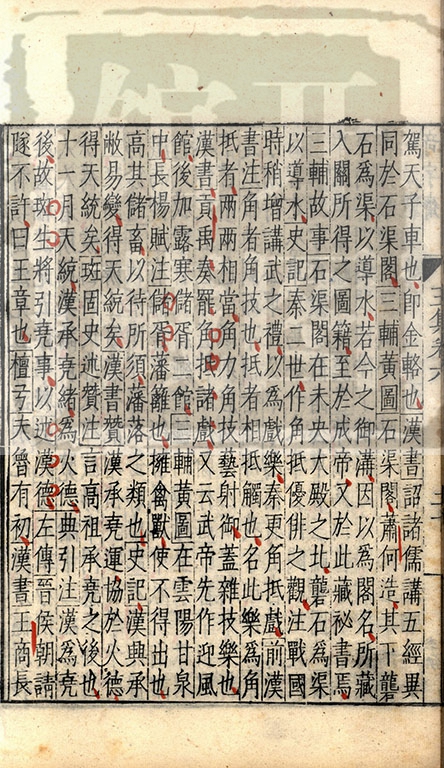 駕天子車也即金輅也漢書詔諸儒講五經異
同於石渠閣三輔黃圖石渠閣蕭何造其下礱
石為渠以導水若今之御溝因以為閣名所藏
入關所得之圖籍至於成帝又於此藏祕書焉
三輔故事石渠閣在未央大殿之北礱石為渠
以導水史記秦二世作角抵優俳之觀注戰國
時稍增講武之禮以為戲樂秦更角抵戲前漢
書注角者角技也抵者相抵觸也名此樂為角
抵者兩兩相當角力角技藝射御蓋雜技樂也
漢書貢禹奏罷角抵諸戲又云武帝先作迎風
館後加露寒儲胥二館三輔黃圖在雲陽甘泉
中長楊賦注儲胥藩籬也擁禽獸使不得出也
高其儲畜以待所須藩落之類也史記漢興承
敝易變得天統矣漢書贊漢承堯運協於火德
得天統矣班固史述贊注言高祖承堯之後也
十一月天統漢承堯緒為火德典引注漢為堯
後故班生將引堯事以述漢德左傳晉侯朝請
隧不許曰王章也檀弓夫魯有初漢書王商長